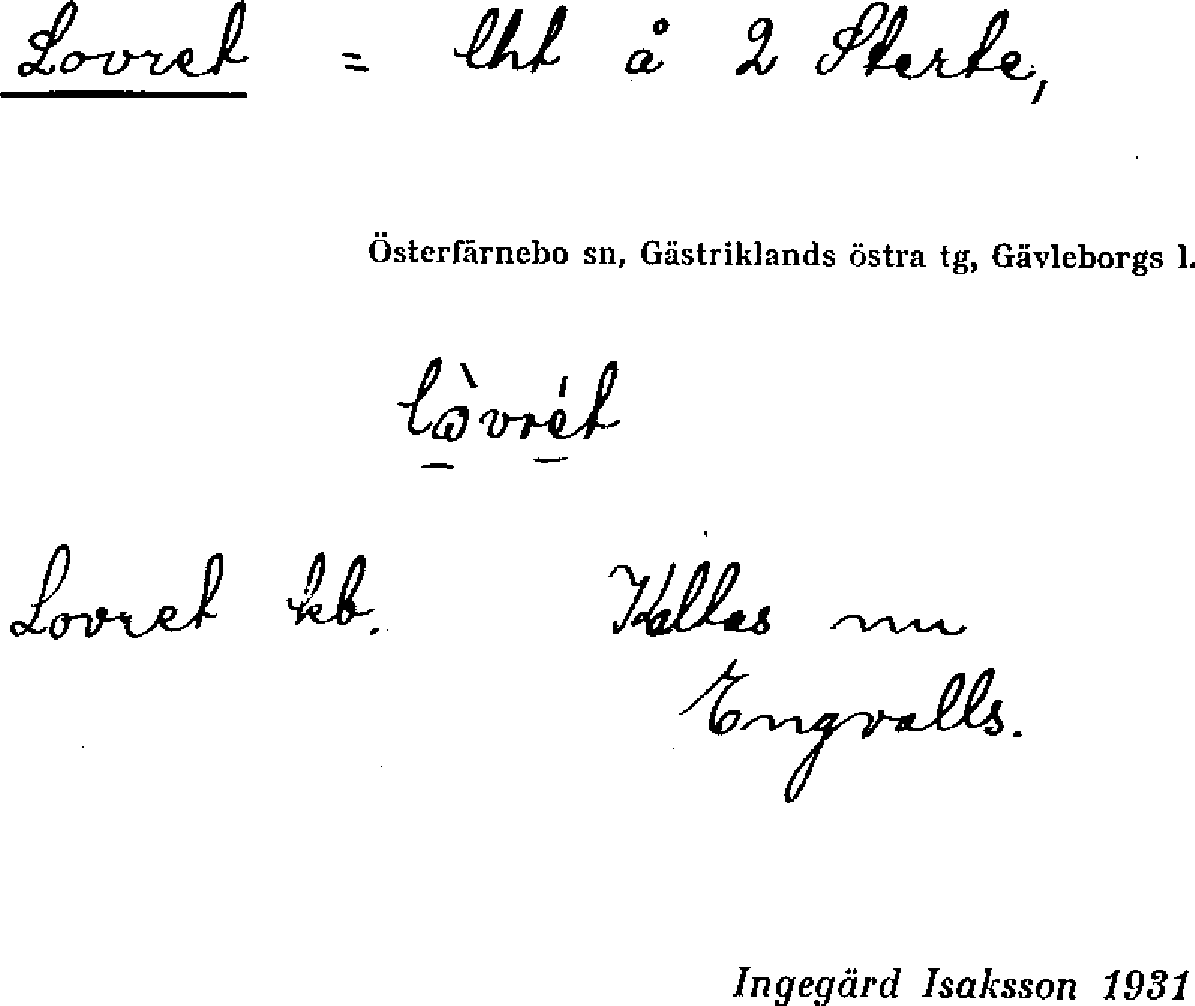 Lovret = lht å 2 Sterte,
Österfärnebo sn, Gästriklands östra tg, Gävleborgs l.
lòvrét
Lovret kb. Kallas nu
Engvalls.
Ingegärd Isaksson 1931